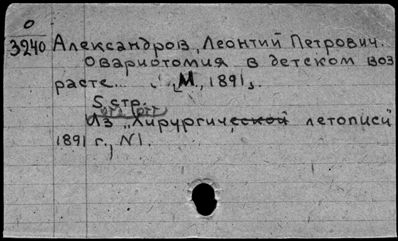 0
3240 Александров, Леонтий Петрович.
Овариотомия в детском воз
расте... М., 1891.
5 стр.
отд. отт
Из "Хирургической летописи"
1891 г., N1.